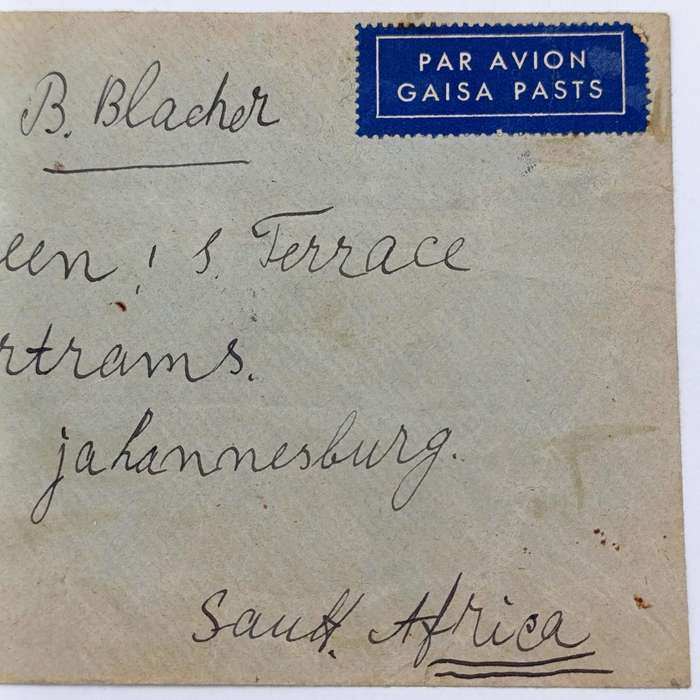 PAR AVION
GAISA PASTS
B. Blacher
een ' s. Terrace
rtrams.
jahannesburg.
Sauth. Africa